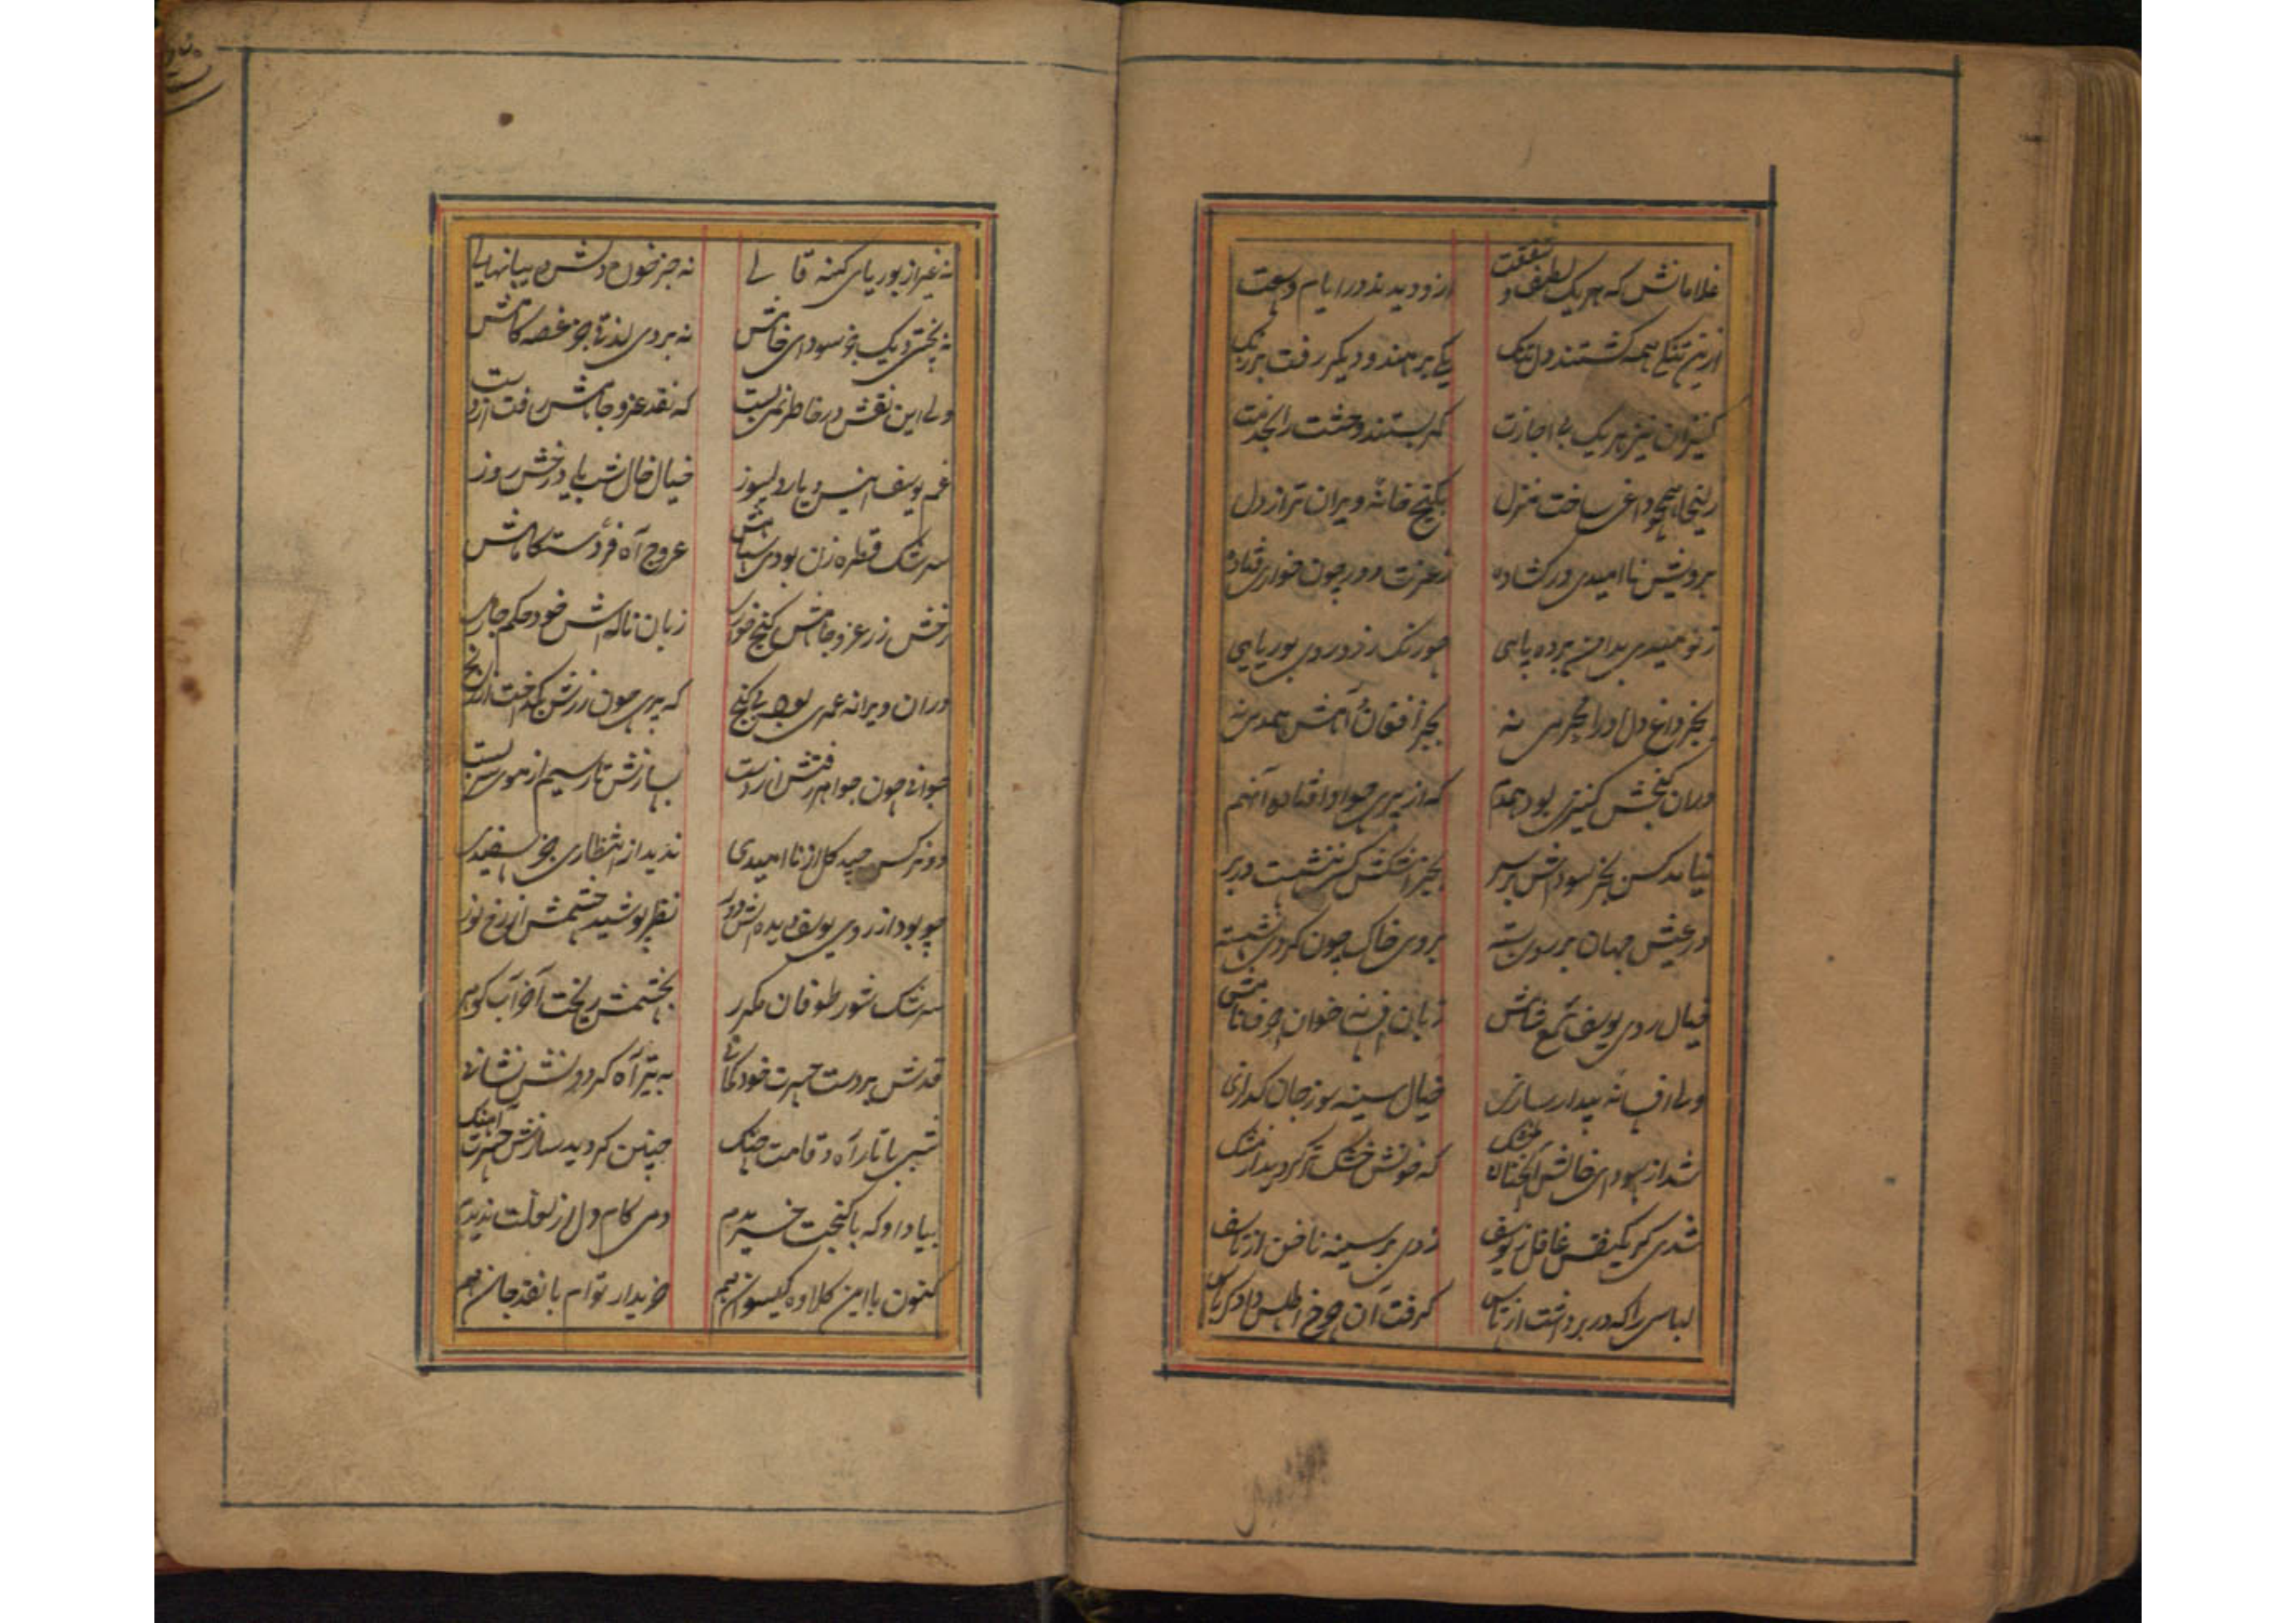 غلامانش که هر یک لطف و شفقت ازو دیدند در ایام وسعت
ازین تنگی همه گشتند دل تنگ یکی بر هند و دیگر رفت بر زنگ
کنیزان نیز هر یک بی اجازت کمر بستند وحشت را بخدمت
زلیخا همچو داغی ساخت منزل بکنج خانهٔ ویران تر از دل
برویش ناامیدی در کشاده ز عزت دور چون خوار فتاده
ز نومیدی بدامن برده پایی چو رنک زرد روی بوریایی
بجز داغ دل او را محرمی نه بجز افغان و آهش همدمی نه
دران کنجش کنیزی بود همدم که از پیری چو او افتاده آنهم
نیامد کس بجز سوداش بر سر بجز اشکش کسی ننشست در بر
در عیش جهان بر روی بسته بروی خاک چون کردی نشسته
خیال روی یوسف شمع شامش زبان افسانه خوان حرف نامش
ولی افسانه بیدار سازی خیال سینه سوز جان کدازی
شد از سودای خالش آنچنان خشک که خونش خشک تر کردید از مشک
شدی کر یکنفس غافل ز یوسف زدی بر سینه ناخن از تاسف
لباسی را که در بر داشت از تاس کرفت آن چرخ اطلس داد کرباس
نه غیر از بوریای کهنه قالی نه جز خون دلش می در پیالی
نه پختی دیک جز سودای خامش نه بردی لذتی جز غصه کامش
ولی این نقش در خاطر نمی بست که نقد عز و جاهش رفت از دست
غم یوسف انیس و یار دلسوز خیال خال شب یاد رخش روز
سرشک قطره زن بودی سپاهش عروج آه فر دستگاهش
رخش زر عز و جاهش کنج خواری زبان ناله اش خود حکم جاری
دران ویرانه عمری بود بی کنج که پیری چون زرش بکداخت از رنج
جوانی چون جواهر رفتش از دست بسازش تار سیم از موی سر بست
دو نرکس چید کل از ناامیدی ندید از انتظاری جز سفیدی
چو بود از روی یوسف دیده اش دور نظر پوشید چشمش از رخ نور
سرشک شور طوفان مکرر بچشمش ریخت آخر آب کوهر
قدش بر دست حسرت خود کمانی به تیر آه کردونش نشانی
شبی با تار آه و قامت چنک چنین کردید سازش حسرت آهنک
بیاد او که با کنجت خریدم دمی کام دل از لعلت ندیدم
کنون با این کلاوه کیسوان هم خریدار توام با نقد جان هم